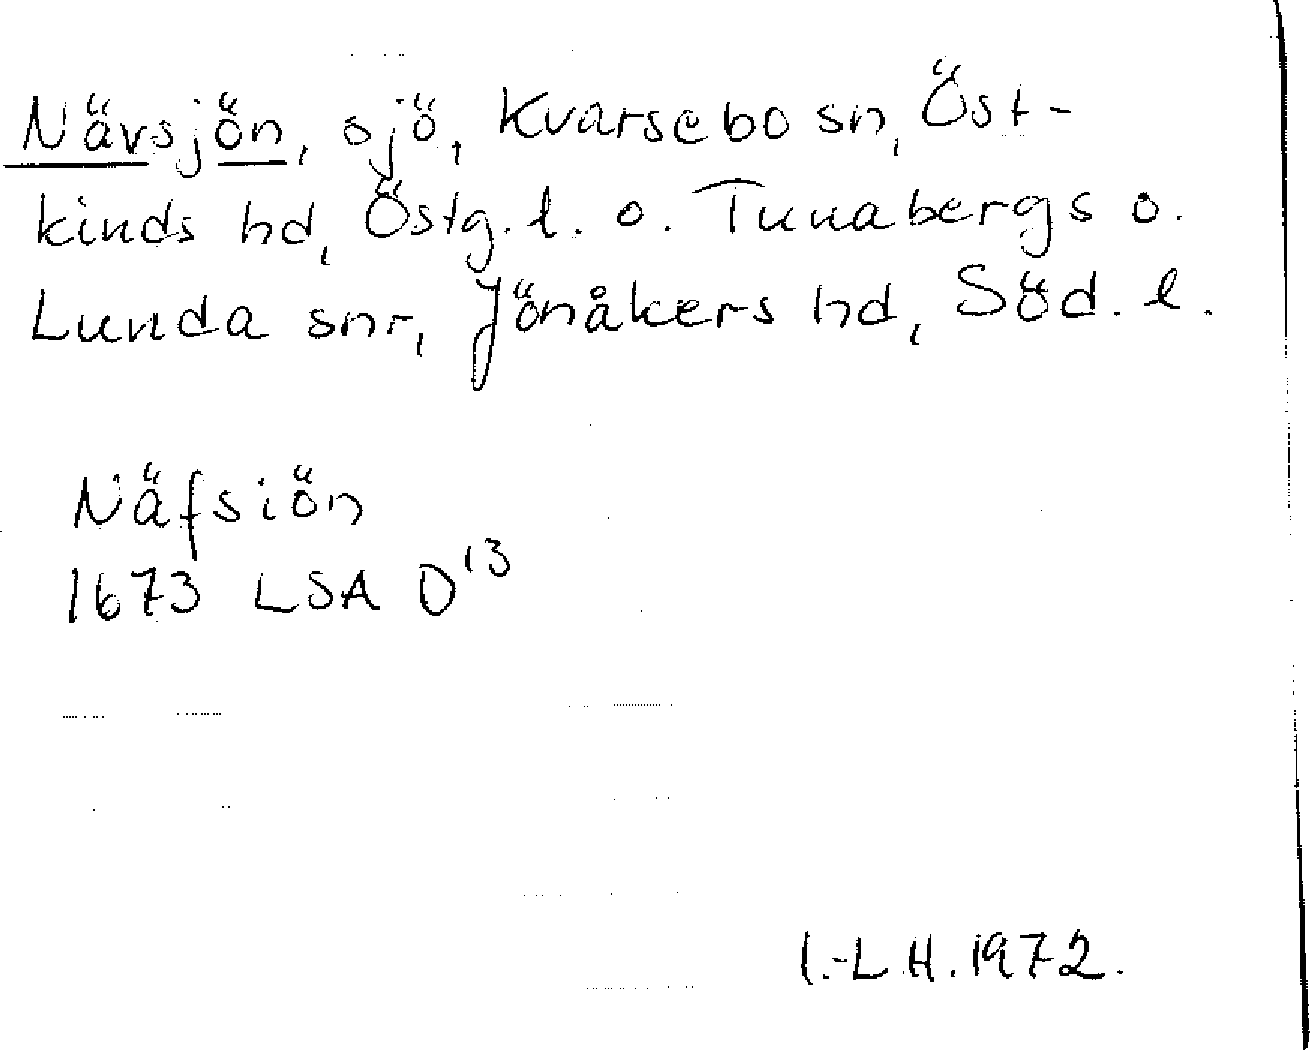 Nävsjön, sjö, Kvarsebo sn, Öst-
kinds hd, Östg. l. o. Tunabergs o.
Lunda snr, Jönåkers hd, Söd. l.
Näfsiön
1673 LSA D¹³
I.-L.H. 1972.